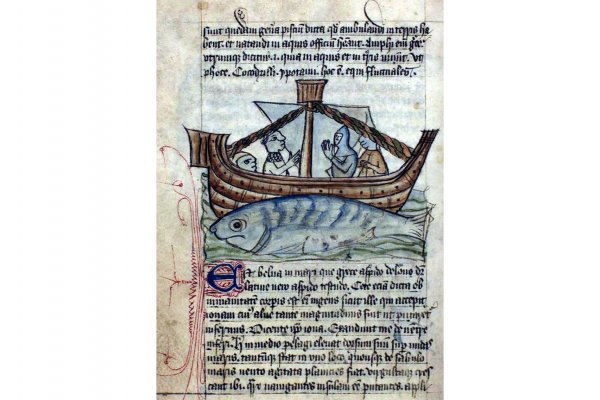 sunt quedam gen̄a pisciū dicta qd̄ ambulandi in terris ha
bent. et natandi in aquis officiū hēant. Amphi em̄ gͬe
utrumque dicitur .i. quia in aquis et in tr̄is uiuūt. vt
phoce. Cocodrilli. ypotami. hoc ē. equi fluctuales.
Est belua in mari que grece aspido delone dr̄
latine uero aspido testudo. Cete eciā dicta ob
inmanitatē corpis est em̄ ingens sicut ille qui excepit
ionam cui⁹ aluꝰ tante magnitudinis fuit ut putaret᷑
infernus. Dicente ip̄o iona. Exaudiuit me de uentre
inferi. in medio pelagi eleuat dorsum suū sup̄ undas
maris. tantūque stat in vno loco. quousque de sabulo
maris uento agitata planicies fiat. uirgultaque cres
cant ibi. nauigantes insulam eē putantes. appli